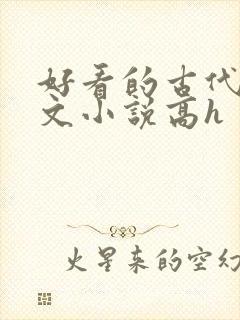 好看的古代
文小说高h
火星来的空幻